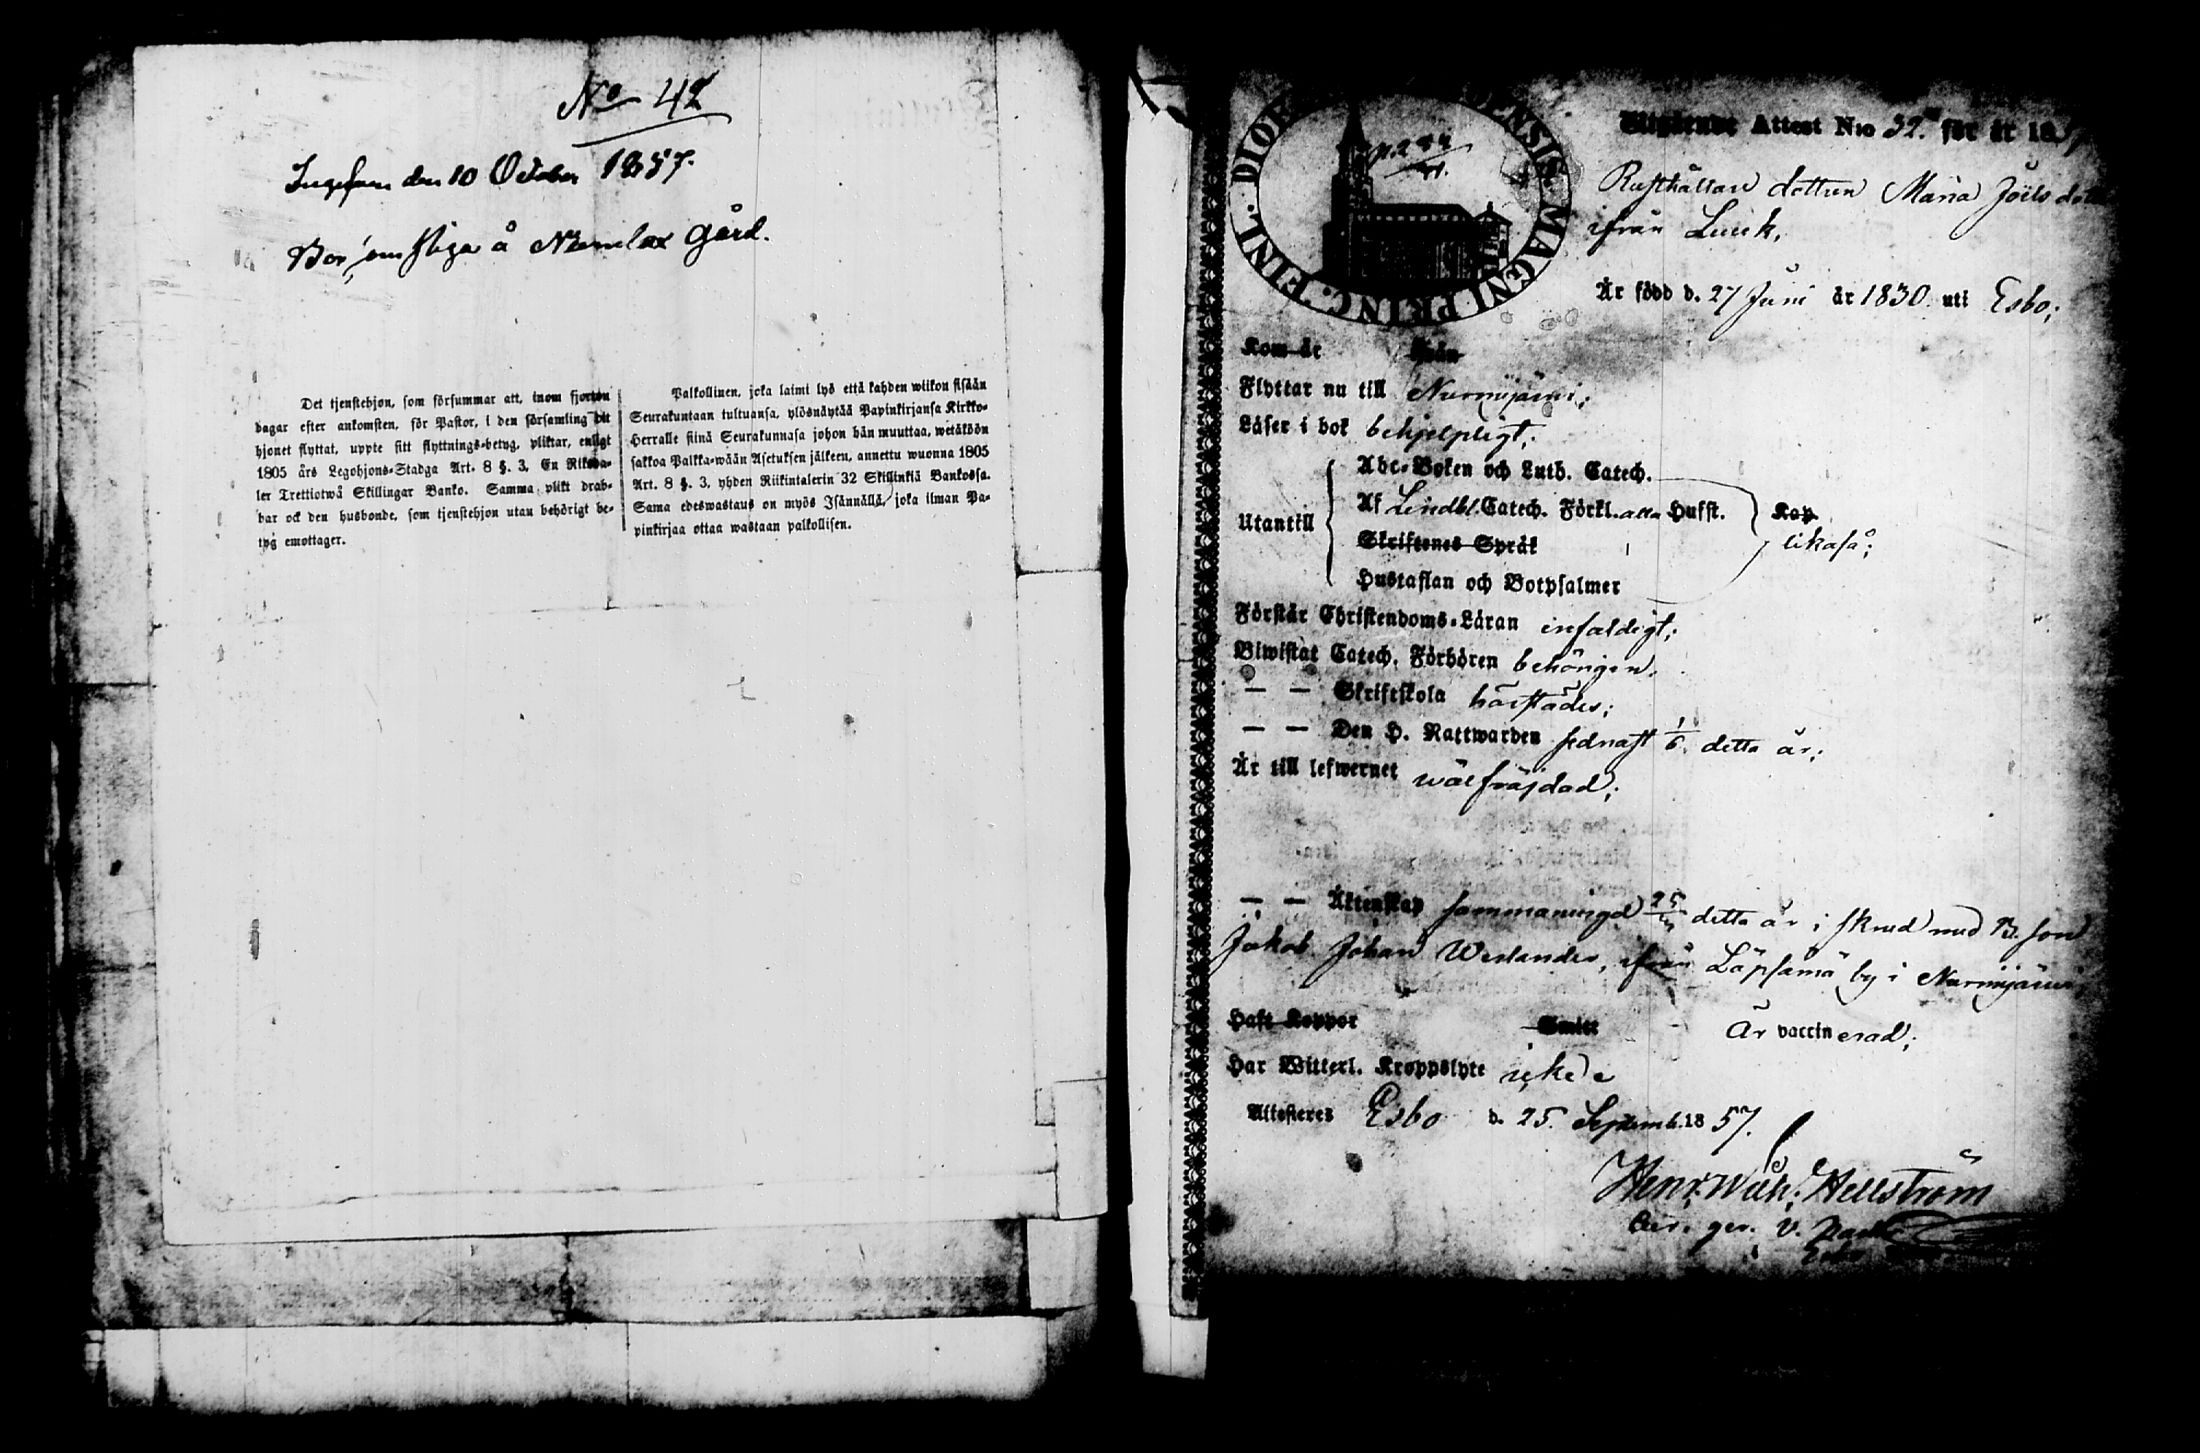 No 42
Ingifven den 10 October 1857.
Bor å gård.
Det tjenstehjon, som försummar att, inom fjorton
dagar efter ankomsten, för Pastor, i den församling dit
hjonet flyttat, uppte sitt flyttnings-betyg, pliktar, enligt
1805 års Legohjons-Stadga Art. 8 §. 3, En Riksda-
ler Trettiotwå Skillingar Banko. Samma plikt drab-
bar ock den husbonde, som tjenstehjon utan behörigt be-
tyg emottager.
Palkollinen, joka laimi lyö että kahden wiikon sisään
Seurakuntaan tultuansa, ylösnäytää Papinkirjansa Kirkko-
Herralle siinä Seurakunnasa johon hän muuttaa, wetäköön
sakkoa Palkka-wään Asetuksen jälkeen, annettu wuonna 1805
Art. 8 §. 3, yhden Riikintalerin 32 Skillinkiä Bankossa.
Sama edeswastaus on myös Isännällä, joka ilman Pa-
pinkirjaa ottaa wastaan palkollisen.
MAGNI PRINC. FINL.
Utgående Attest N:o 52. för år 185
Rusthållare dottren Maria Joëls
ifrån Luuk,
Är född d. 27 Juni år 1830 uti Esbo;
Kom år från
Flyttar nu till Nurmijärvi;
Läser i bok behjelpligt;
Utantill
Abc-Boken och Luth. Catech.
Af Lindbl. Catech. Förkl. alla Hufst.
Skriftenes Språk
Hustaflan och Botpsalmer
Kap.
likaså;
Förstår Christendoms-Läran enfaldigt;
Biwistat Catech. Förhören behörigen.
— — Skriftskola härstädes;
— — Den H. Nattwarden sednast 1/6 detta år;
Är till lefwernet wälfräjdad;
— — Äktenskap sammanwigd 25 detta år i skrud med B. son
Jakob Johan Weslander, ifrån Läpsämä by i Nurmijärvi;
Haft Koppor Smitt Är vaccinerad;
Har Witterl. Kroppslyte icke
Attesteres Esbo d. 25. Septemb. 1857.
Henr. Wilh. Hellström
v. Pastor